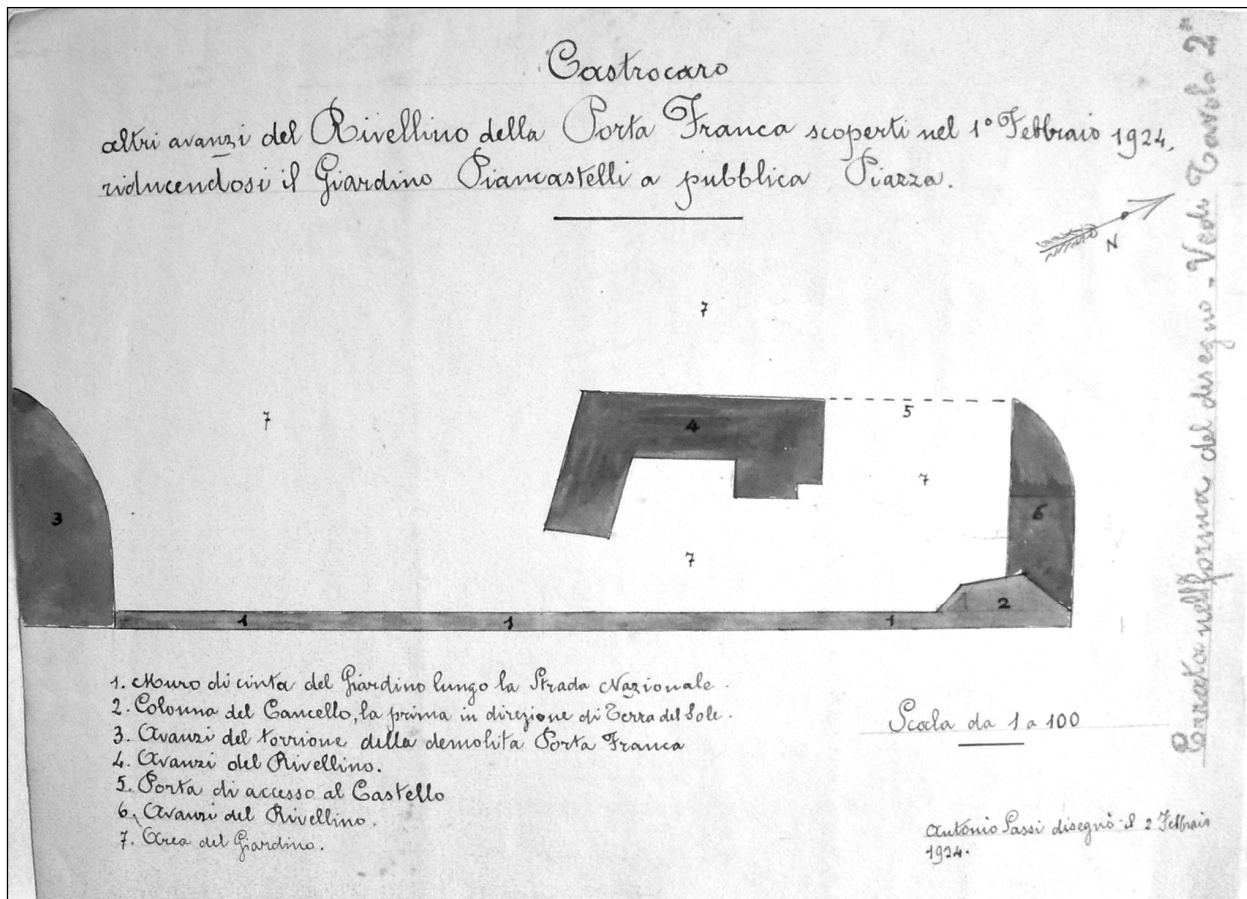 Castrocaro
altri avanzi del Rivellino della Porta Franca scoperti nel 1º Febbraio 1924,
riducendosi il Giardino Piancastelli a pubblica Piazza.
N
7
7
4
5
7
3
6
7
2
1 1 1
1. Muro di cinta del Giardino lungo la Strada Nazionale.
2. Colonna del Cancello, la prima in direzione di Terra del Sole.
3. Avanzi del torrione della demolita Porta Franca
4. Avanzi del Rivellino.
5. Porta di accesso al Castello
6. Avanzi del Rivellino.
7. Area del Giardino.
Scala da 1 a 100
Antonio Passi disegnò il 2 Febbraio
1924.
Errata nell forma del disegno - Vedi Tavola 2ª